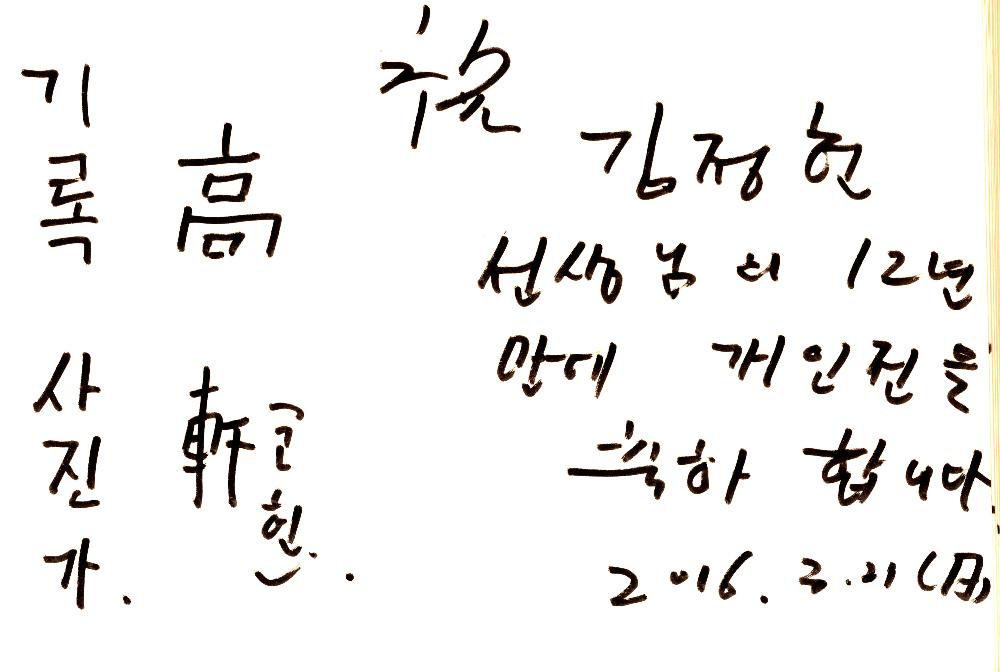 祝
김정헌
선생님의 12년
만에 개인전을
축하 합니다.
2016. 3. 21 (月)
高軒(고헌).
기록사진가.